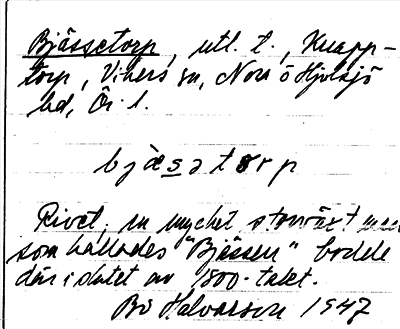 Bjässetorp, utl. t., Knapp-
torp, Vikers sn, Nora o Hjulsjö
bd, Ör. l.
bjäsətorp
Rivet, en mycket storväxt man
som kallades "Bjässen" bodde
där i slutet av 1800-talet.
Bo Halvarson 1947